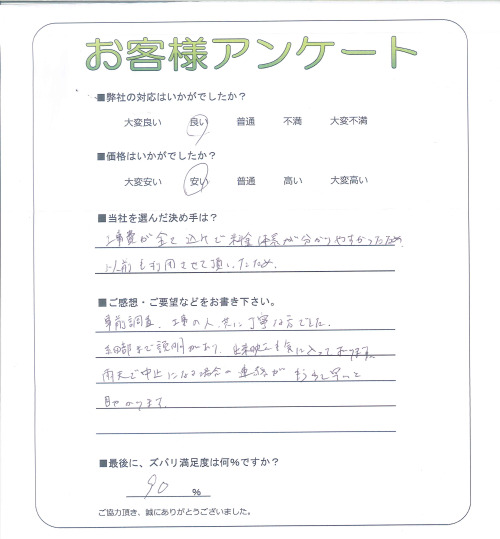 お客様アンケート
■弊社の対応はいかがでしたか？
大変良い 良い 普通 不満 大変不満
■価格はいかがでしたか？
大変安い 安い 普通 高い 大変高い
■当社を選んだ決め手は？
工事費が全て込みで料金体系が分かりやすかったため
以前も利用させて頂いたため.
■ご感想・ご要望などをお書き下さい。
事前調査、工事の人共に丁寧な方でした.
細部まで説明があり、出来映えも気に入っております。
雨天で中止になる場合の連絡がもう少し早いと
助かります.
■最後に、ズバリ満足度は何%ですか？
90 %
ご協力頂き、誠にありがとうございました。